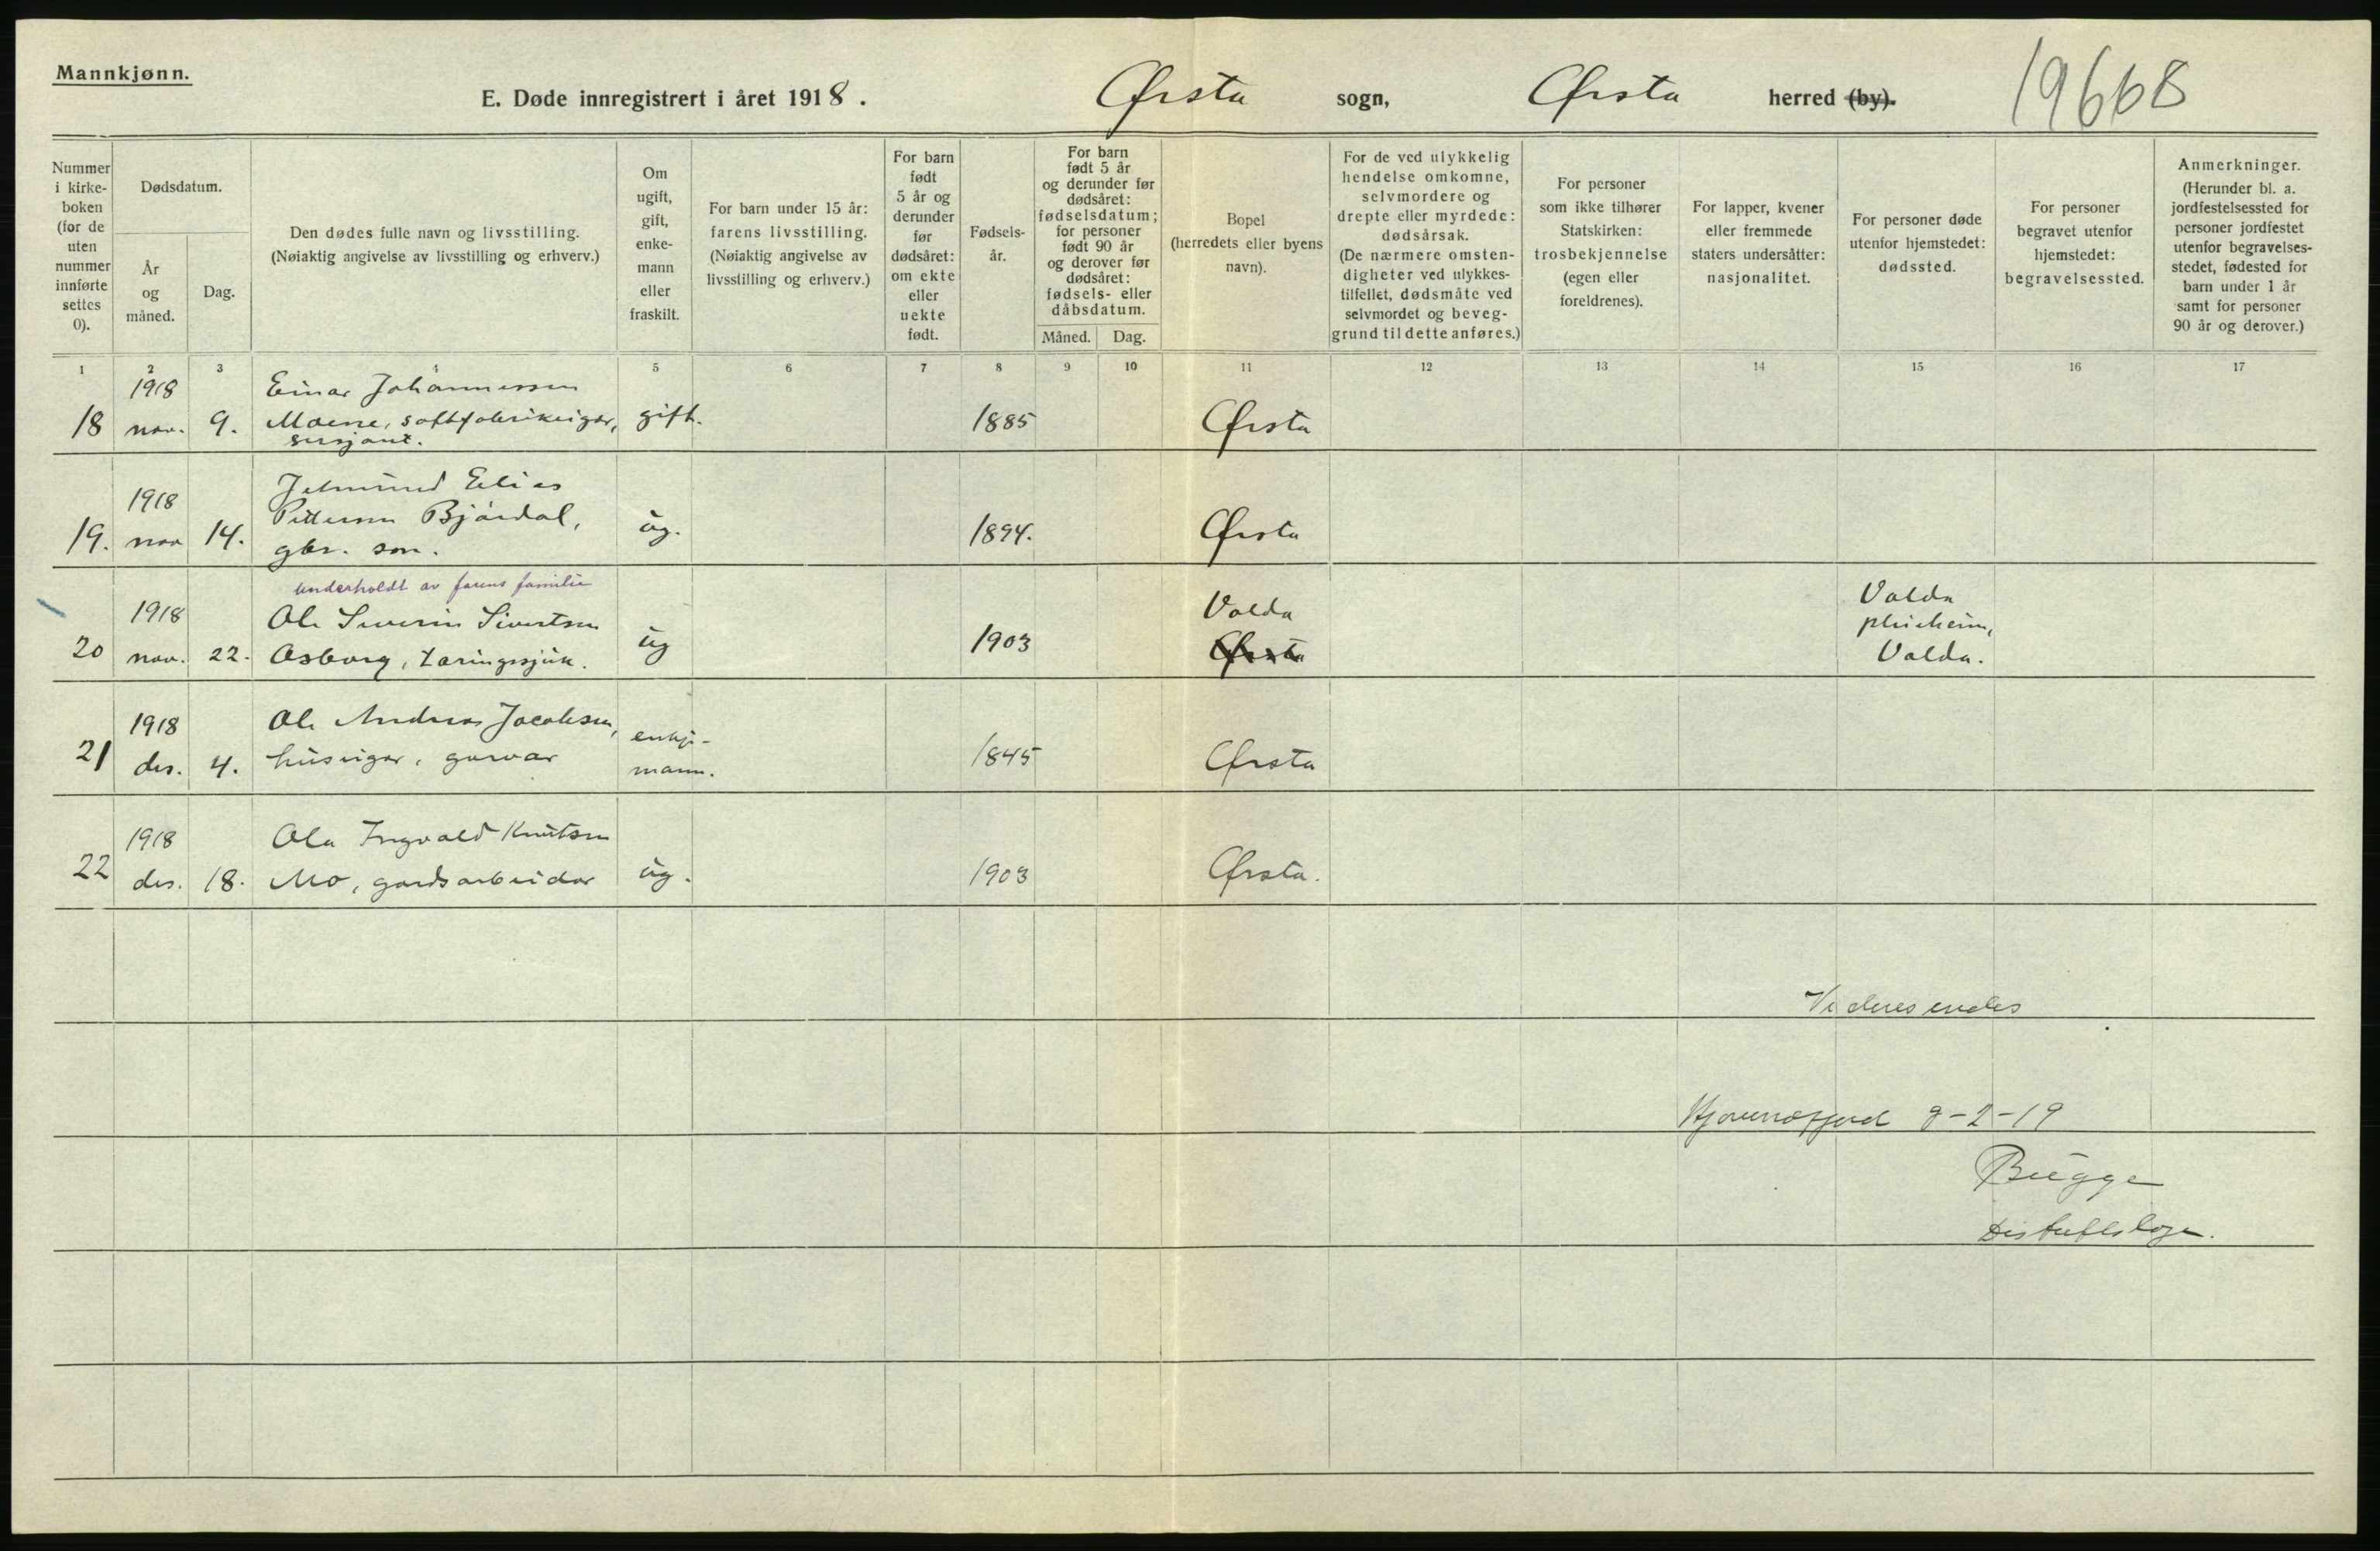 Mannkjønn.
E. Døde innregistrert i året 1918. Ørsta sogn, Ørsta herred (by). 19668
Nummer i kirke-boken (for de uten nummer innførte settes 0).
Dødsdatum.
År og måned.
Dag.
Den dødes fulle navn og livsstilling.
(Nøiaktig angivelse av livsstilling og erhverv.)
Om ugift, gift, enke-mann eller fraskilt.
For barn under 15 år: farens livsstilling.
(Nøiaktig angivelse av livsstilling og erhverv.)
For barn født 5 år og derunder før dødsåret: om ekte eller uekte født.
Fødsels-år.
For barn født 5 år og derunder før dødsåret: fødselsdatum; for personer født 90 år og derover før dødsåret: fødsels- eller dåbsdatum.
Måned. Dag.
Bopel (herredets eller byens navn).
For de ved ulykkelig hendelse omkomne, selvmordere og drepte eller myrdede: dødsårsak. (De nærmere omsten-digheter ved ulykkes-tilfellet, dødsmåte ved selvmordet og beveg-grund til dette anføres.)
For personer som ikke tilhører Statskirken: trosbekjennelse (egen eller foreldrenes).
For lapper, kvener eller fremmede staters undersåtter: nasjonalitet.
For personer døde utenfor hjemstedet: dødssted.
For personer begravet utenfor hjemstedet: begravelsessted.
Anmerkninger. (Herunder bl. a. jordfestelsessted for personer jordfestet utenfor begravelses-stedet, fødested for barn under 1 år samt for personer 90 år og derover.)
1 2 3 4 5 6 7 8 9 10 11 12 13 14 15 16 17
1918 Einar Johannessen
18 nov. 9. Moene, saftfabrikeigar, gift. 1885 Ørsta
sersjant.
1918 Elias
Pettersen Bjørdal,
19. nov 14. gbr. son. ug. 1894. Ørsta
underholdt av farens familie
1918 Ole Severin Sivertsen Volda Volda
20 nov. 22. Åsborg, tæringssjuk. ug 1903 Ørsta pleieheim,
Volda.
1918 Ole Andreas Jacobsen, enkje-
21 des. 4. huseigar, garvar mann. 1845 Ørsta
1918 Ola Ingvald Knutsen
22 des. 18. Mo, gardsarbeidar ug. 1903 Ørsta.
Videresendes
9-2-19
Bugge
Distriktslæge.